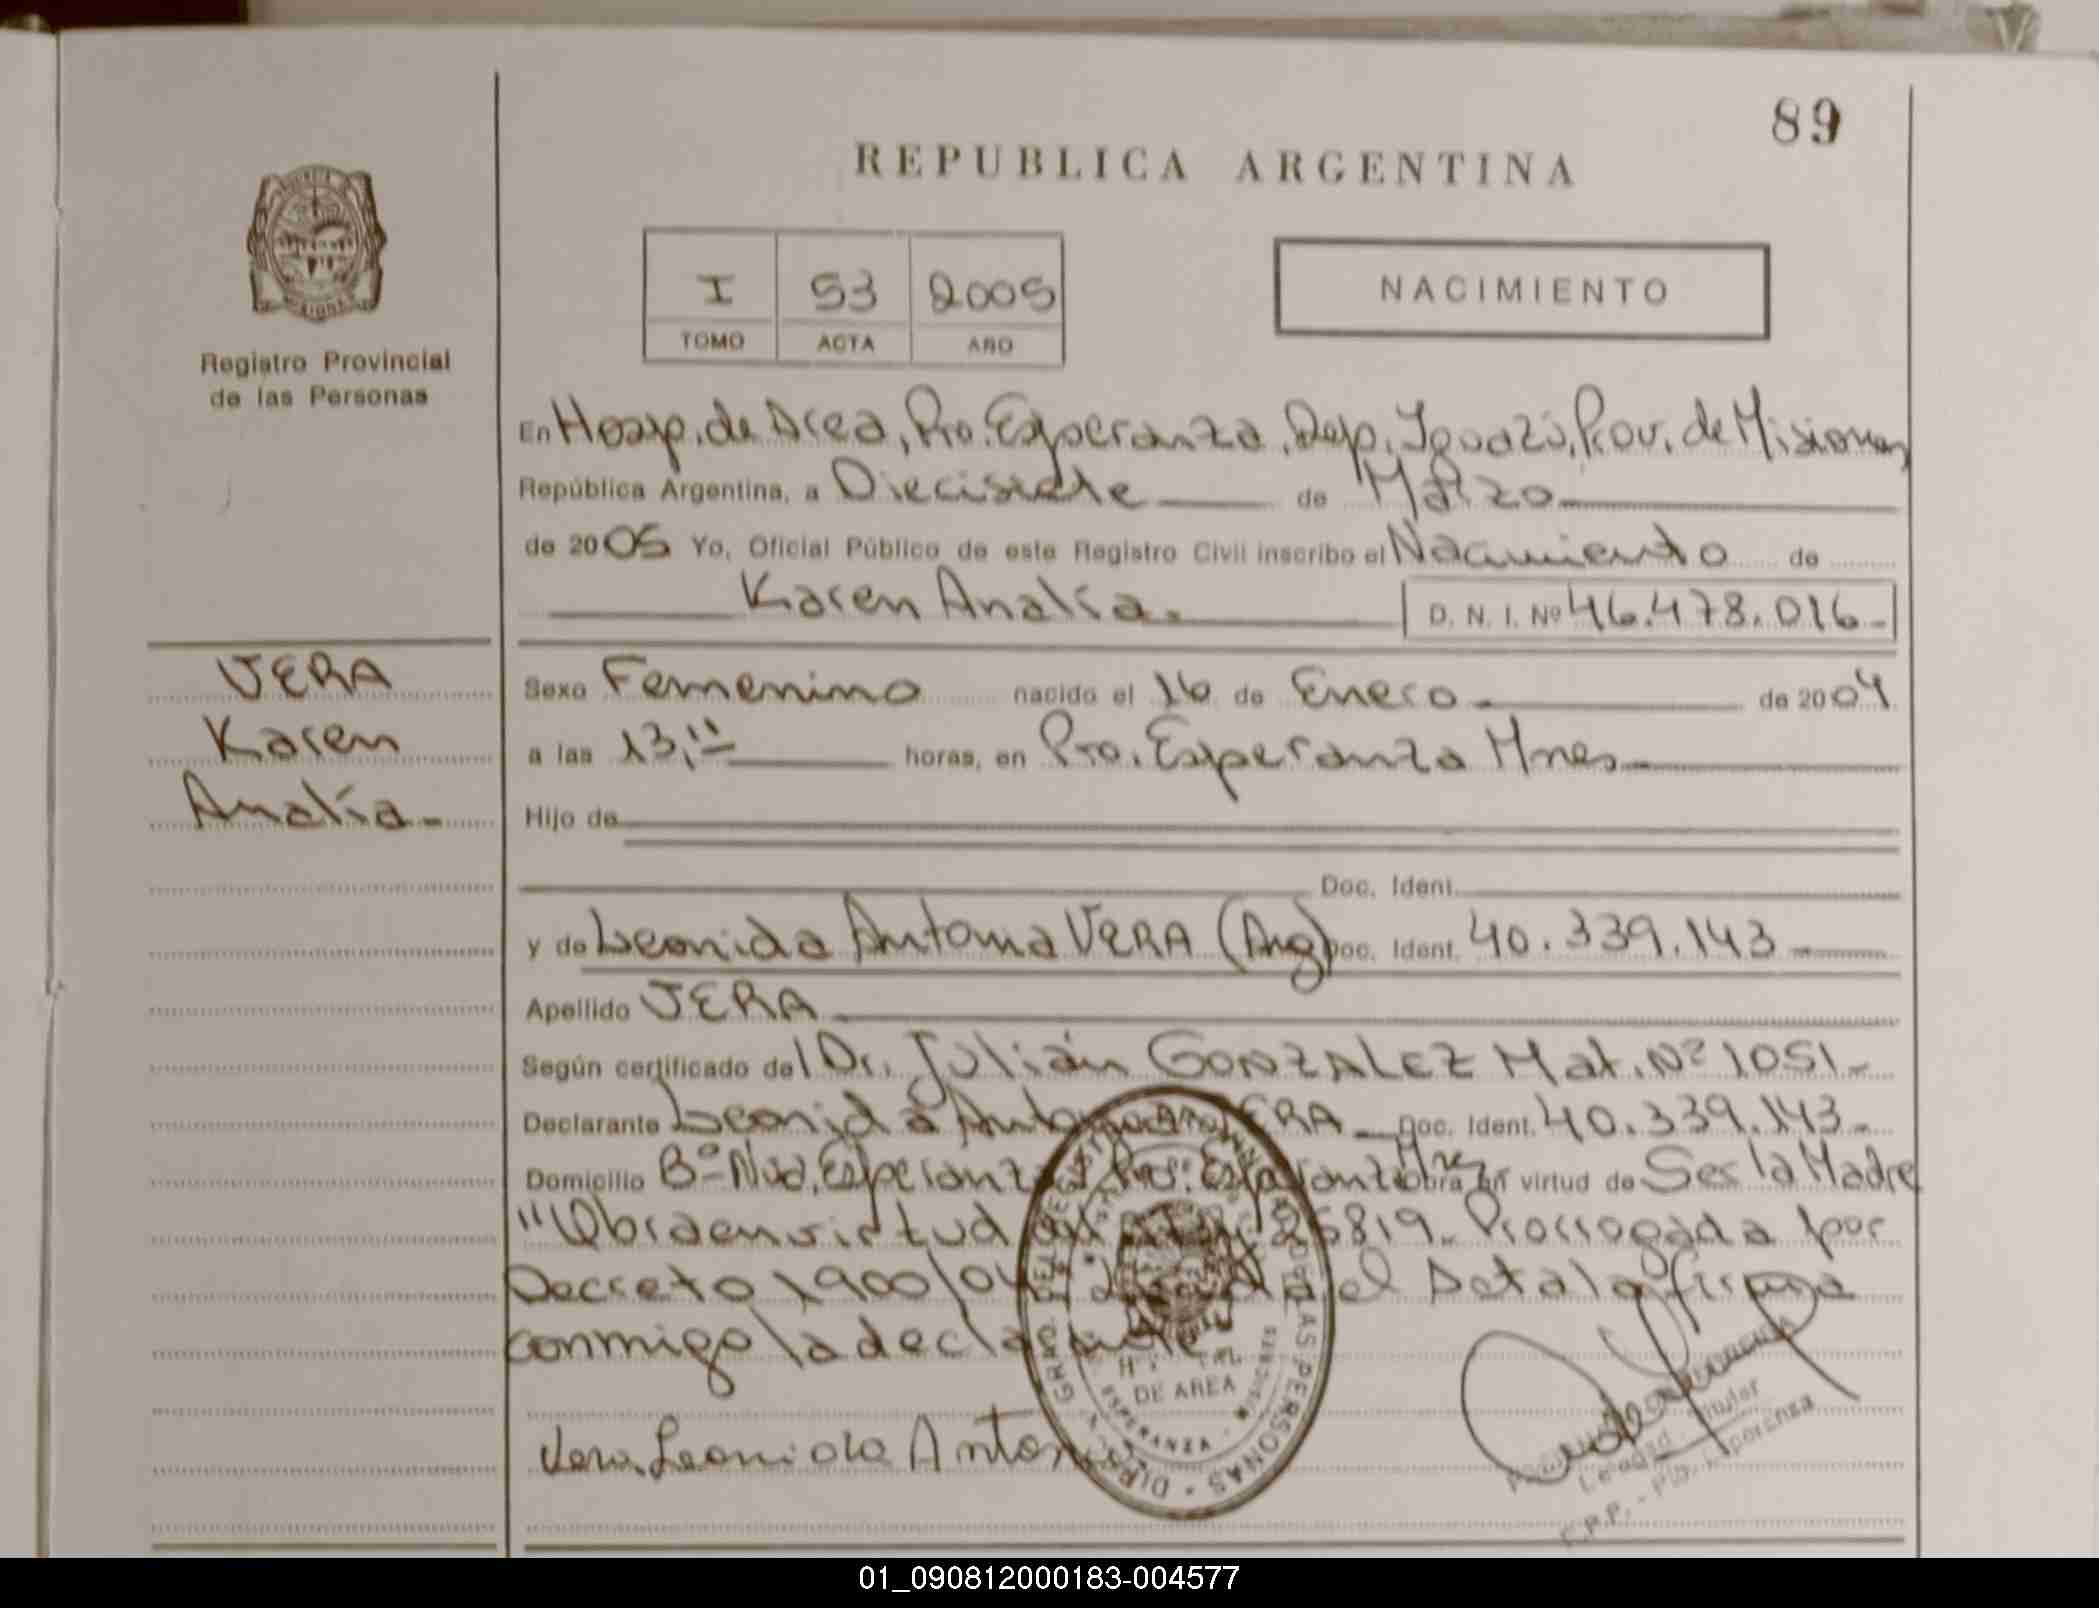 89
REPUBLICA ARGENTINA
I 53 2005
TOMO ACTA AÑO
NACIMIENTO
Registro Provincial
de las Personas
En Hosp. de Area, Pto. Esperanza, Dep. Iguazú, Prov. de Misiones
República Argentina, a Diecisiete de Marzo
de 2005 Yo, Oficial Público de este Registro Civil inscribo el Nacimiento de
Karen Analía. D. N. I. Nº 46.478.016-
VERA
Karen
Analía-
Sexo Femenino nacido el 16 de Enero de 2004
a las 13," horas, en Pto. Esperanza Mnes
Hijo de
Doc. Ident.
y de Leonida Antonia VERA (Arg) Doc. Ident. 40.339.143
Apellido VERA
Según certificado del Dr. Julián GONZALEZ Mat. Nº 1051-
Declarante Leonida Antonia VERA Doc. Ident. 40.339.143-
Domicilio Bº Nva. Esperanza Pto. Esperanza Mnes Obra en virtud de Ser la Madre
"Obra en virtud 25819. Prorrogada por
Decreto 1900/04 el Acta la firma
conmigo la declarante
Vera Leonida Antonia
DE AREA
ESPERANZA
DE LAS PERSONAS
Titular
01_090812000183-004577